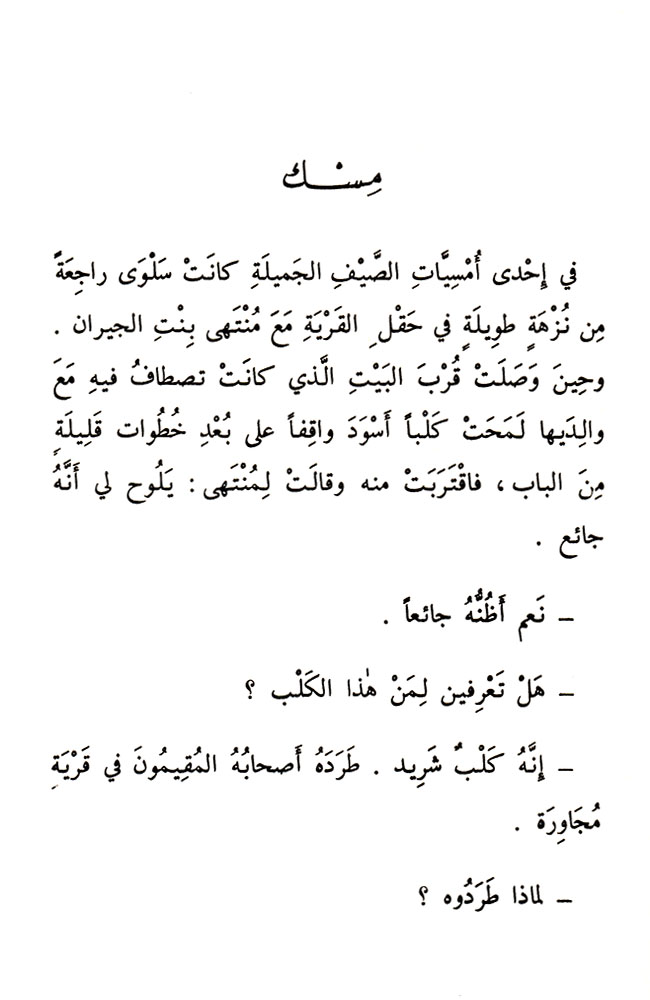 مِسـنـك
في إِحْدى أُمْسِيَّاتِ الصَّيْفِ الجَميلَةِ كانَتْ سَلْوَى راجِعَةً
مِن نُزْهَةٍ طوِيلَةٍ في حَقْلِ القَرْيَةِ مَعَ مُنْتَهى بِنْتِ الجيران .
وحِينَ وَصَلَتْ قُرْبَ البَيْتِ الَّذي كانَتْ تصطافُ فيهِ مَعَ
والِدَيها لَمَحَتْ كَلْباً أَسْوَدَ واقِفاً على بُعْدِ خُطُوات قَلِيلَةٍ
مِنَ الباب ، فاقْتَرَبَتْ منه وقالَتْ لِمُنْتَهى : يَلُوح لي أَنَّهُ
جائع .
– نَعم أَظُنُّهُ جائعاً .
– هَلْ تَعْرِفين لِمَنْ هٰذا الكَلْب ؟
– إِنَّهُ كَلْبٌ شَرِيد . طَرَدَهُ أَصحابُهُ المُقِيمُونَ في قَرْيَةٍ
مُجَاوِرَة .
– لماذا طَرَدُوه ؟